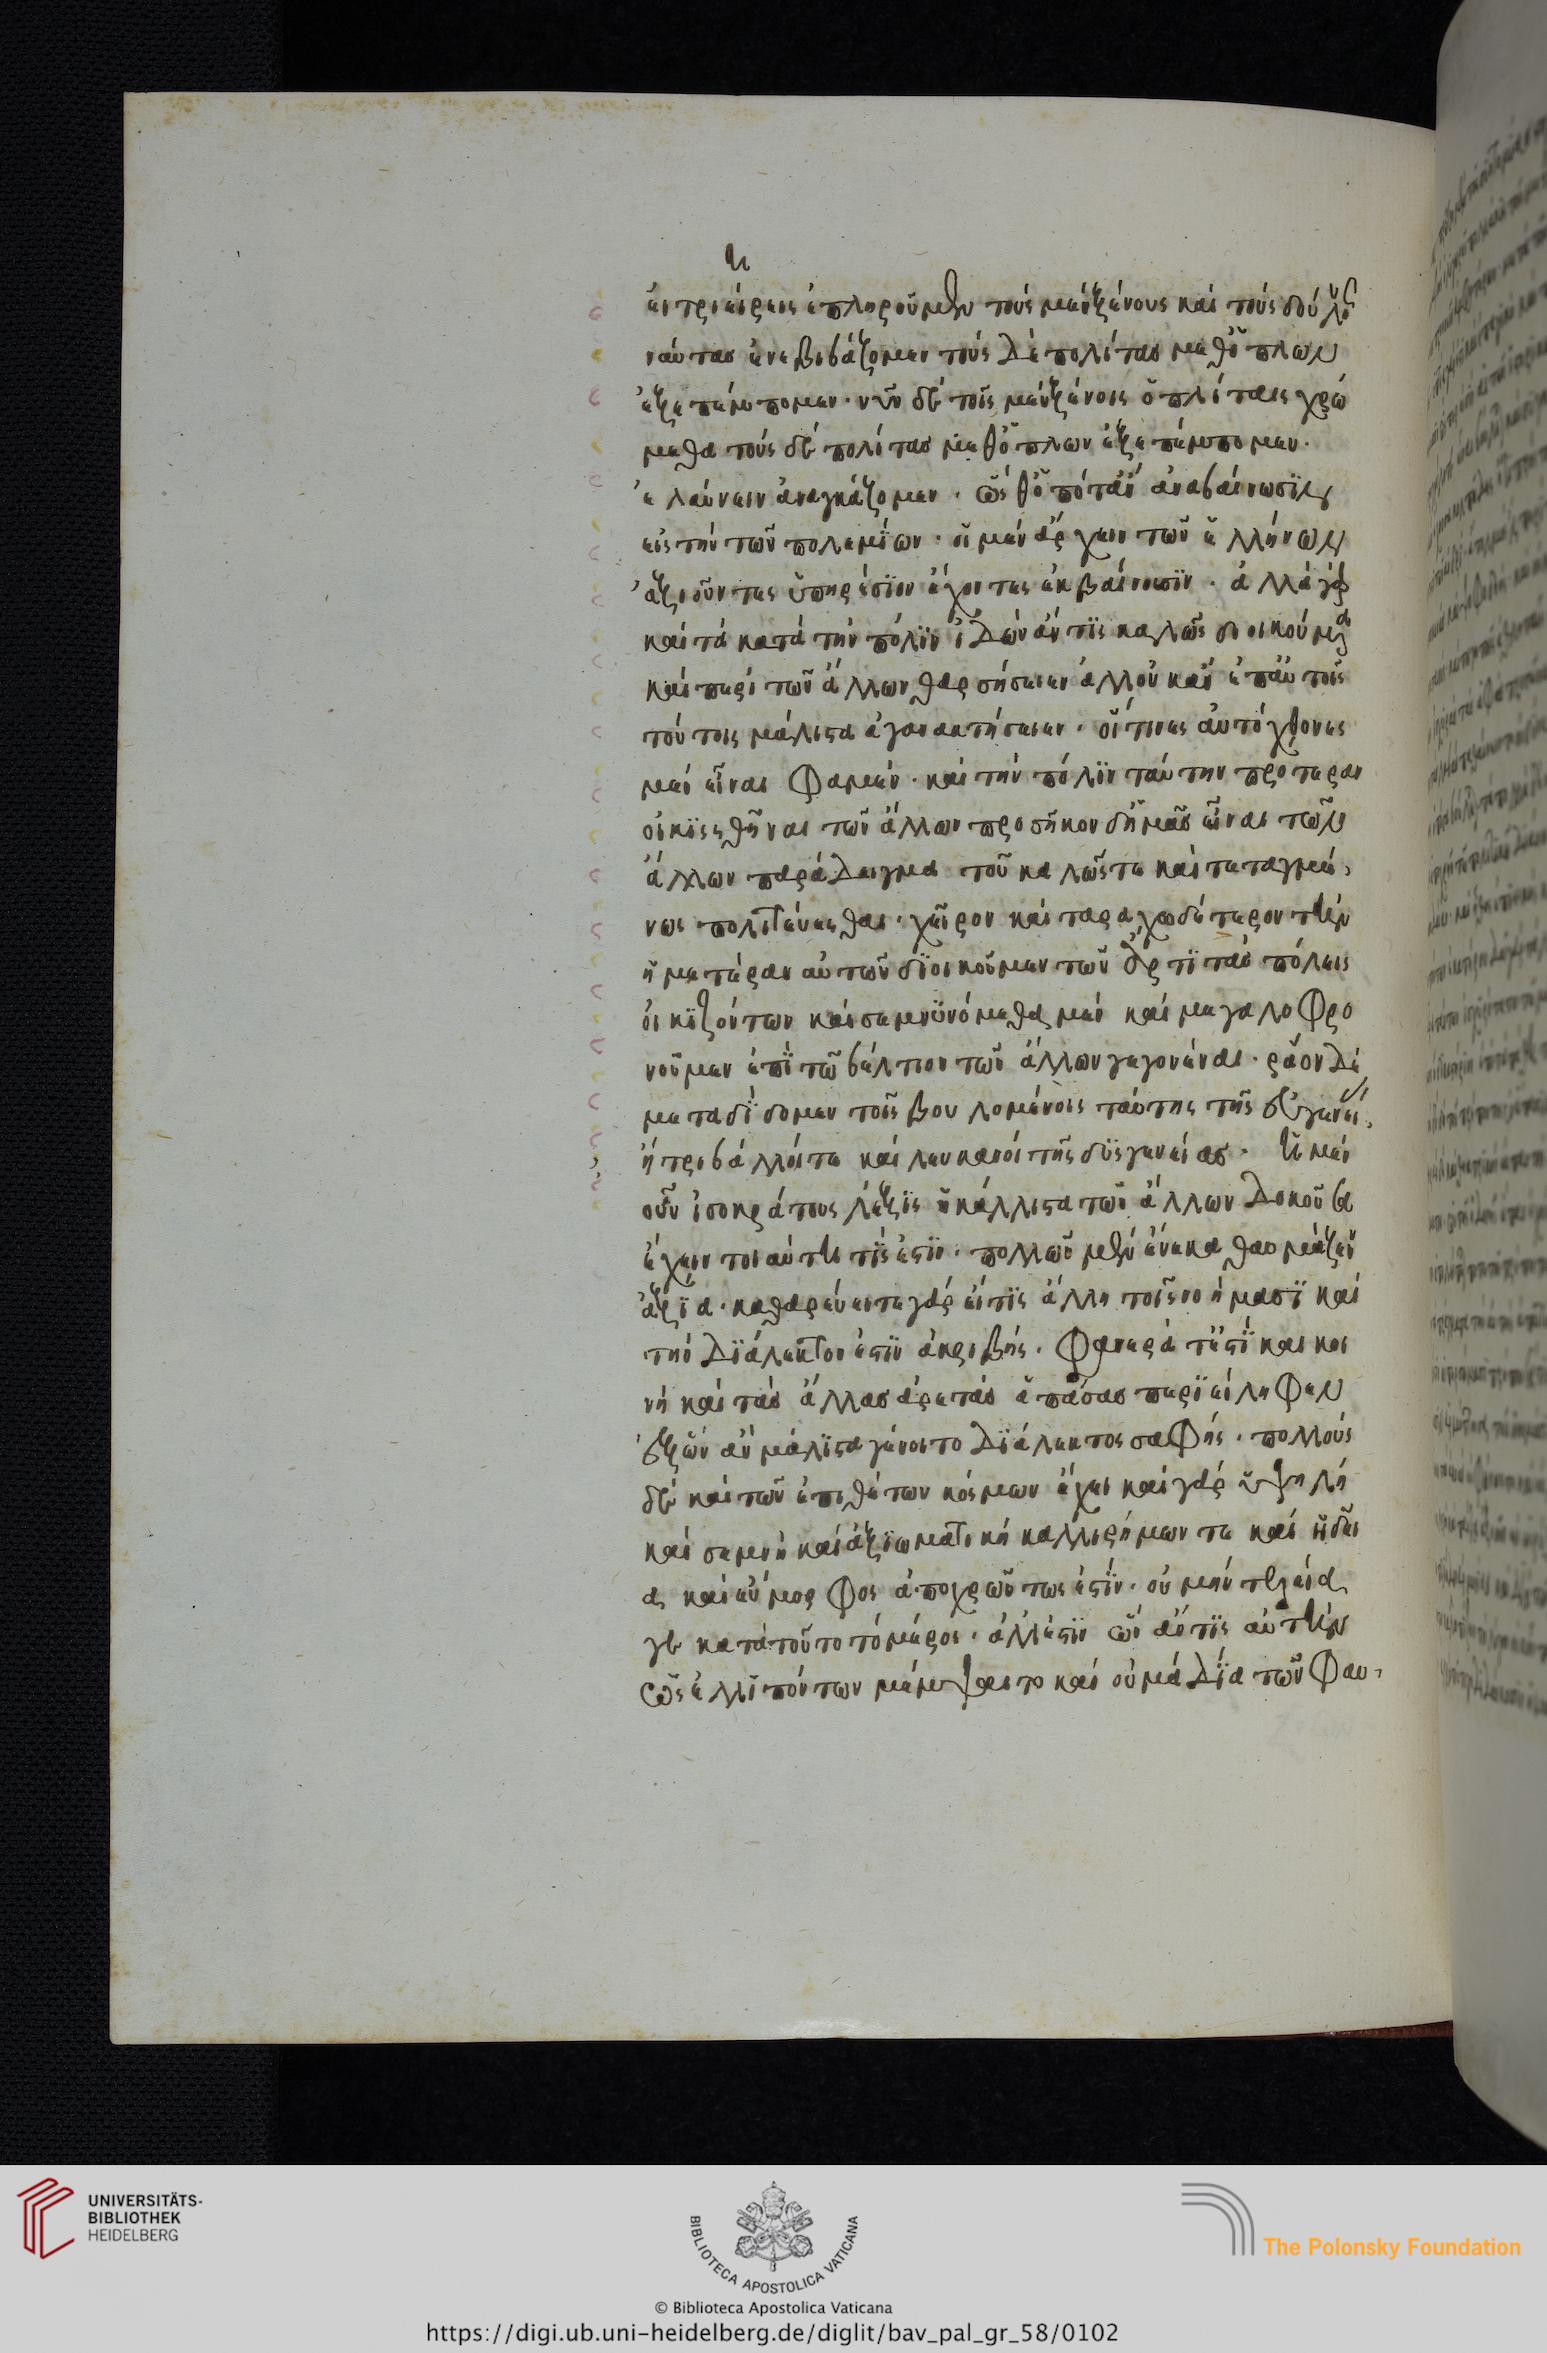 η
εἰ τριήρεις ἐπληροῦμεν τοὺς μὲν ξένους καὶ τοὺς δούλους
ναύτας ἀνεβιβάζομεν τοὺς δὲ πολίτας μεθ' ὅπλων
ἐξεπέμπομεν· νῦν δὲ τοῖς μὲν ξένοις ὁπλίταις χρώ
μεθα τοὺς δὲ πολίτας μεθ' ὅπλων ἐξεπέμπομεν·
ἐλαύνειν ἀναγκάζομεν· ὥσθ' ὁπόταν ἀναβαίνωσιν
εἰς τὴν τῶν πολεμίων· οἱ μὲν ἄρχειν τῶν ἑλλήνων
ἀξιοῦντες ὑπηρέσιον ἔχοντες ἐκβαίνουσιν· ἀλλὰ γὰρ
καὶ τὰ κατὰ τὴν πόλιν ἰδὼν ἄν τις καλῶς διοικούμενα
καὶ περὶ τῶν ἄλλων θαρσήσειεν ἀλλ' οὐκ ἂν ἐπ' αὐτοῖς
τούτοις μάλιστα ἀγανακτήσειεν· οἵτινες αὐτόχθονες
μὲν εἶναι φαμὲν· καὶ τὴν πόλιν ταύτην προτέραν
οἰκισθῆναι τῶν ἄλλων προσῆκον δ' ἡμᾶς εἶναι τῶν
ἄλλων παράδειγμα τοῦ καλῶς τε καὶ τεταγμέ
νως πολιτεύεσθαι· χεῖρον καὶ ταραχωδέστερον τὴν
ἡμετέραν αὐτῶν διοικοῦμεν τῶν ἄρτι τὰς πόλεις
οἰκιζόντων καὶ σεμνυνόμεθα μὲν καὶ μεγαλοφρο
νοῦμεν ἐπὶ τῷ βέλτιον τῶν ἄλλων γεγονέναι· ρᾷον δὲ
μεταδίδομεν τοῖς βουλομένοις ταύτης τῆς εὐγενείας
ἢ τριβαλλοί τε καὶ λευκανοὶ τῆς δυσγενείας· ἡ μὲν
οὖν ἰσοκράτους λέξις ἡ κάλλιστα τῶν ἄλλων δοκοῦσα
ἔχειν τοιαύτη τίς ἐστιν· πολλῶν μὲν ἕνεκα θαυμάζειν
ἀξία· καθαρεύει τε γὰρ εἴ τις ἄλλη τοῖς νοήμασι καὶ
τὴν διάλεκτον ἐστὶν ἀκριβής· φανερά τ' ἐστὶ καὶ κοι
νὴ καὶ τὰς ἄλλας ἀρετὰς ἁπάσας περιείληφεν
ἐξ ὧν ἂν μάλιστα γένοιτο διάλεκτος σαφής· πολλοὺς
δὲ καὶ τῶν ἐπιθέτων κόσμων ἔχει καὶ γὰρ ὑψηλὴ
καὶ σεμνὴ καὶ ἀξιωματικὴ καλλιρήμων τε καὶ ἡδεῖ
α καὶ εὔμορφος ἀποχρώντως ἐστίν· οὐ μὴν τελεία
γε κατὰ τοῦτο τὸ μέρος· ἀλλ' ἔστιν ὧν ἄν τις αὐτὴν
ὡς ἐλλιπόντων μέμψαιτο καὶ οὐ μὰ δία τῶν φαυ
UNIVERSITÄTS-
BIBLIOTHEK
HEIDELBERG
BIBLIOTECA APOSTOLICA VATICANA
The Polonsky Foundation
© Biblioteca Apostolica Vaticana
https://digi.ub.uni-heidelberg.de/diglit/bav_pal_gr_58/0102